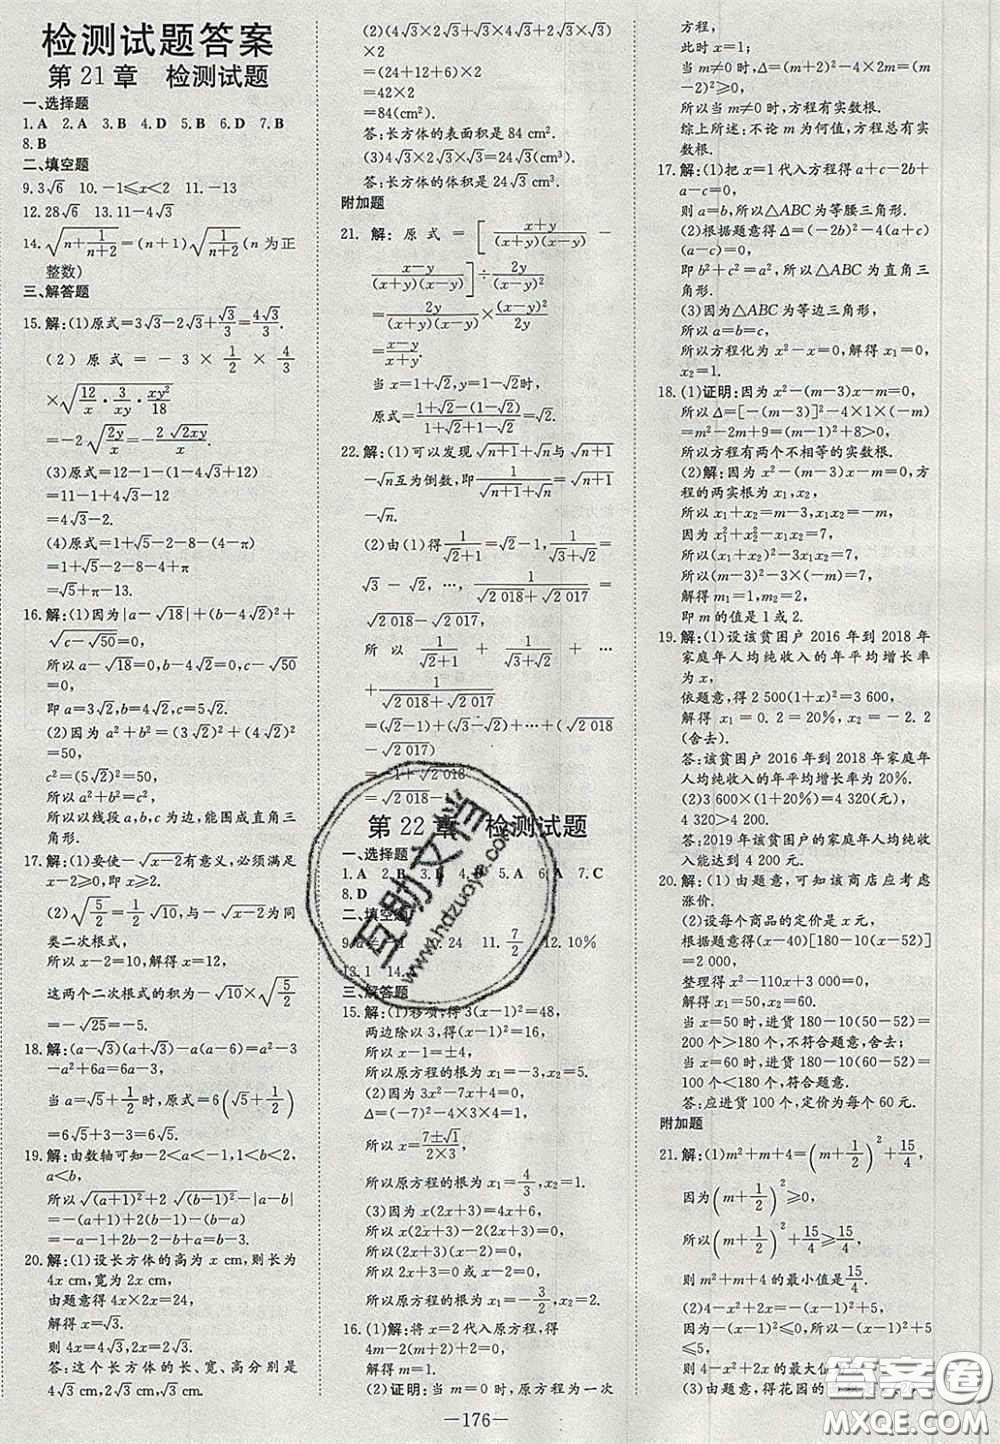 检测试题答案
第21章 检测试题
一、选择题
1.A 2.A 3.B 4.D 5.B 6.D 7.B
8.B
二、填空题
9.3√6 10.-1≤x<2 11.-13
12.28√6 13.11-4√3
14.√(n+1/(n+2))=(n+1)√(1/(n+2))(n为正
整数)
三、解答题
15.解:(1)原式=3√3-2√3+√3/3=4√3/3.
(2)原式=-3×1/2×4/3
×√(12/x·3/xy·xy²/18)
=-2√(2y/x)=-2√2xy/x.
(3)原式=12-1-(1-4√3+12)
=11-1+4√3-12
=4√3-2.
(4)原式=1+√5-2-8-4-(4-π)
=1+√5-2-8-4-4+π
=√5+π-13.
16.解:(1)因为|a-√18|+(b-4√2)²+
√(c-√50)=0,
所以a-√18=0,b-4√2=0,c-√50
=0,
即a=3√2,b=4√2,c=5√2.
(2)因为a²+b²=(3√2)²+(4√2)²
=50,
c²=(5√2)²=50,
所以a²+b²=c²,
所以以线段a,b,c为边,能构成直角三
角形.
17.解:(1)要使-√(x-2)有意义,必须满足
x-2≥0,即x≥2.
(2)√(5/2)=√5/√2=1/2√10,与-√(x-2)为同
类二次根式,
所以x-2=10,解得x=12.
这两个二次根式的积为-√10×√(5/2)
=-√25=-5.
18.解:(a-√3)(a+√3)-a(a-6)=a²-3
-a²+6a=6a-3,
当a=√5+1/2时,原式=6(√5+1/2)-3
=6√5+3-3=6√5.
19.解:由数轴可知-2<a<-1,1<b<2,
a<b,
所以√(a+1)²+√(b-1)²-|a-b|
=-(a+1)+(b-1)-(b-a)
=-a-1+b-1-b+a=-2.
20.解:(1)设长方体的高为x cm,则长为
4x cm,宽为2x cm,
由题意得4x×2x=24,
所以x=√3,
则4x=4√3,2x=2√3.
答:这个长方体的长、宽、高分别是
4√3 cm,2√3 cm,√3 cm.
(2)(4√3×2√3+4√3×√3+2√3×√3)
×2
=(24+12+6)×2
=42×2
=84(cm²).
答:长方体的表面积是84 cm².
(3)4√3×2√3×√3=24√3(cm³).
答:长方体的体积是24√3 cm³.
附加题
21.解:原式=[(x+y)/((x+y)(x-y))-
(x-y)/((x+y)(x-y))]÷2y/(x-y)²
=2y/((x+y)(x-y))×(x-y)²/2y
=(x-y)/(x+y).
当x=1+√2,y=1-√2时,
原式=(1+√2-(1-√2))/(1+√2+1-√2)=√2.
22.解:(1)可以发现√(n+1)+√n与√(n+1)
-√n互为倒数,即1/(√(n+1)+√n)=√(n+1)
-√n.
(2)由(1)得1/(√2+1)=√2-1,1/(√3+√2)=
√3-√2,…,1/(√2 018+√2 017)=
√2 018-√2 017,
所以1/(√2+1)+1/(√3+√2)+…
+1/(√2 018+√2 017)
=(√2-1)+(√3-√2)+…+(√2 018
-√2 017)
=-1+√2 018
=√2 018-1.
第22章 检测试题
一、选择题
1.A 2.B 3.B 4.B 5.A 6.A 7.C
8.D
二、填空题
24 11.7/2 12.10%
13.1 14.
三、解答题
15.解:(1)移项,得3(x-1)²=48,
两边除以3,得(x-1)²=16,
所以x-1=±4,
所以原方程的根为x₁=-3,x₂=5.
(2)因为3x²-7x+4=0,
Δ=(-7)²-4×3×4=1,
所以x=(7±√1)/(2×3),
所以原方程的根为x₁=4/3,x₂=1.
(3)因为x(2x+3)=4x+6,
所以x(2x+3)-2(2x+3)=0,
所以(2x+3)(x-2)=0,
所以2x+3=0或x-2=0,
所以原方程的根为x₁=-3/2,x₂=2.
16.(1)解:将x=2代入原方程,得
4m-2(m+2)+2=0,
解得m=1.
(2)证明:当m=0时,原方程为一次
方程,
此时x=1;
当m≠0时,Δ=(m+2)²-4×2m=(m-2)²≥0,
所以当m≠0时,方程有实数根.
综上所述:不论m为何值,方程总有
实数根.
17.解:(1)把x=1代入方程得a+c-2b+
a-c=0,
则a=b,所以△ABC为等腰三角形.
(2)根据题意得Δ=(-2b)²-4(a+c)
(a-c)=0,
即b²+c²=a²,所以△ABC为直角三
角形.
(3)因为△ABC为等边三角形,
所以a=b=c,
所以方程化为x²-x=0,解得x₁=0,
x₂=1.
18.(1)证明:因为x²-(m-3)x-m=0,
所以Δ=[-(m-3)]²-4×1×(-m)
=m²-2m+9=(m-1)²+8>0,
所以方程有两个不相等的实数根.
(2)解:因为x²-(m-3)x-m=0,
方程的两实根为x₁,x₂,
所以x₁+x₂=m-3,x₁x₂=-m.
因为x₁²+x₂²-x₁x₂=7,
所以(x₁+x₂)²-3x₁x₂=7,
所以(m-3)²-3×(-m)=7,
解得m₁=1,m₂=2,
即m的值是1或2.
19.解:(1)设该贫困户2016年到2018年
家庭年人均纯收入的年平均增长率
为x,
依题意,得2 500(1+x)²=3 600,
解得x₁=0.2=20%,x₂=-2.2
(舍去).
答:该贫困户2016年到2018年家庭年
人均纯收入的年平均增长率为20%.
(2)3 600×(1+20%)=4 320(元),
4 320>4 200.
答:2019年该贫困户的家庭年人均纯收
入能达到4 200元.
20.解:(1)由题意,可知该商店应考虑
涨价.
(2)设每个商品的定价是x元.
根据题意得(x-40)[180-10(x-52)]
=2 000,
整理得x²-110x+3 000=0,
解得x₁=50,x₂=60.
当x=50时,进货180-10(50-52)=
200个>180个,不符合题意,舍去;
当x=60时,进货180-10(60-52)=
100个<180个,符合题意.
答:应进货100个,定价为每个60元.
附加题
21.解:(1)m²+m+4=(m+1/2)²+15/4,
因为(m+1/2)²≥0,
所以(m+1/2)²+15/4≥15/4,
则m²+m+4的最小值是15/4.
(2)4-x²+2x=-(x-1)²+5,
因为-(x-1)²≤0,
所以-(x-1)²+5≤5,
则4-x²+2x的最大值
(3)由题意,得花园的
—176—
互助文档
www.hdzuoye.com
答案圈
MXQE.COM